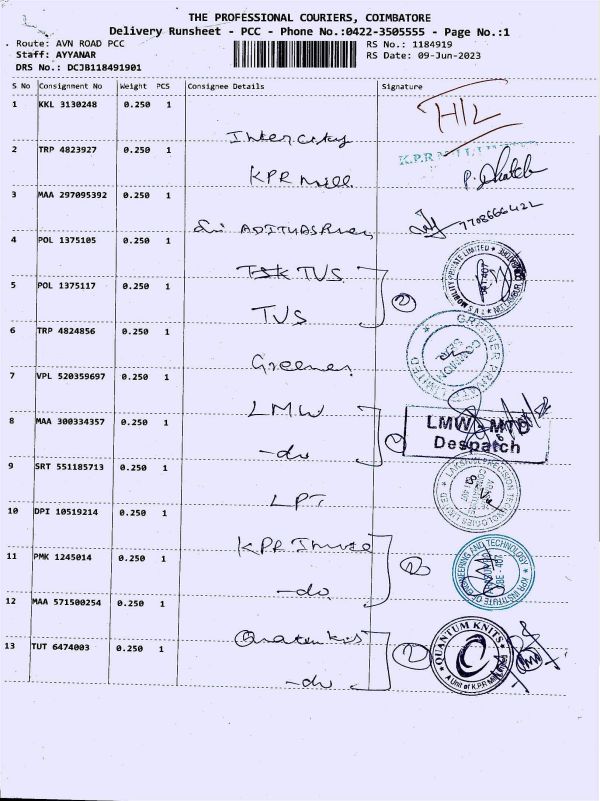 THE PROFESSIONAL COURIERS, COIMBATORE
Delivery Runsheet - PCC - Phone No.:0422-3505555 - Page No.:1
Route: AVN ROAD PCC
RS No.: 1184919
Staff: AYYANAR
RS Date: 09-Jun-2023
DRS No.: DCJB118491901
S No Consignment No Weight PCS Consignee Details Signature
1 KKL 3130248 0.250 1 Intercity H/L
2 TRP 4823927 0.250 1 KPR Mill K.P.R
3 MAA 297095392 0.250 1 Sri
4 POL 1375105 0.250 1 TVS
5 POL 1375117 0.250 1 TVS
6 TRP 4824856 0.250 1 Greener
7 VPL 520359697 0.250 1 LMW
8 MAA 300334357 0.250 1 -do LMW - MTD
Despatch
9 SRT 551185713 0.250 1 LPT
10 DPI 10519214 0.250 1 KPR
11 PMK 1245014 0.250 1 -do KPR INSTITUTE OF ENGINEERING AND TECHNOLOGY
12 MAA 571500254 0.250 1
13 TUT 6474003 0.250 1 -do QUANTUM KNITS
A Unit of K.P.R Mill